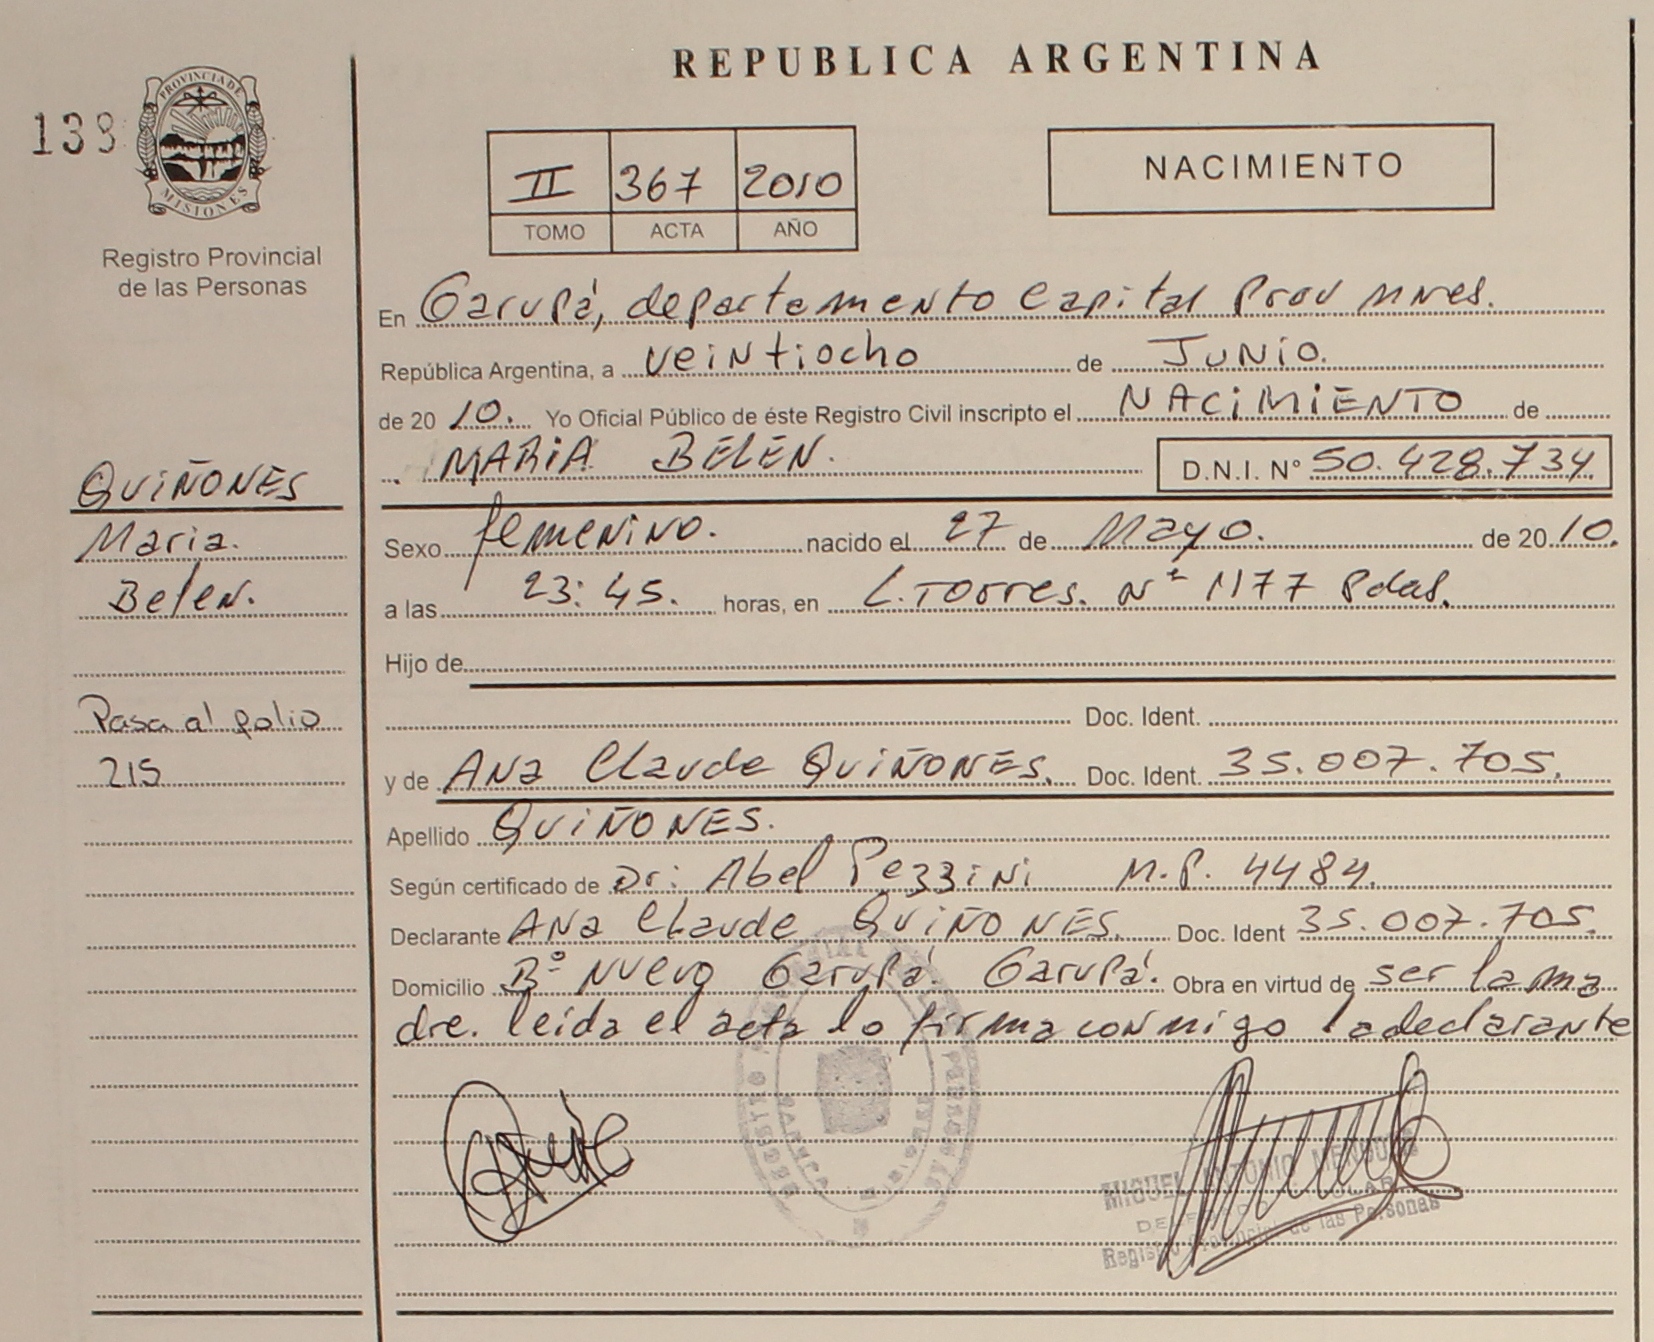 REPUBLICA ARGENTINA
138
PROVINCIA DE
MISIONES
Registro Provincial
de las Personas
II 367 2010
TOMO ACTA AÑO
NACIMIENTO
En Garupá, departamento Capital Prov Mnes.
República Argentina, a veintiocho de Junio.
de 20 10. Yo Oficial Público de éste Registro Civil inscripto el NACIMIENTO de
MARIA BELEN. D.N.I. N° 50.428.734
QUIÑONES
Maria.
Belen.
Pasa al folio
215
Sexo femenino. nacido el 27 de Mayo. de 20 10.
a las 23:45. horas, en L. Torres. N° 1177 Pdas.
Hijo de
Doc. Ident.
y de Ana Claude QUIÑONES. Doc. Ident. 35.007.705.
Apellido QUIÑONES.
Según certificado de Dr: Abel Pezzini M.P. 4484.
Declarante Ana Claude QUIÑONES. Doc. Ident 35.007.705.
Domicilio B° Nuevo Garupá. Garupá. Obra en virtud de ser la ma
dre. leida el acta lo firma conmigo la declarante
MIGUEL ANTONIO
Registro Provincial de las Personas